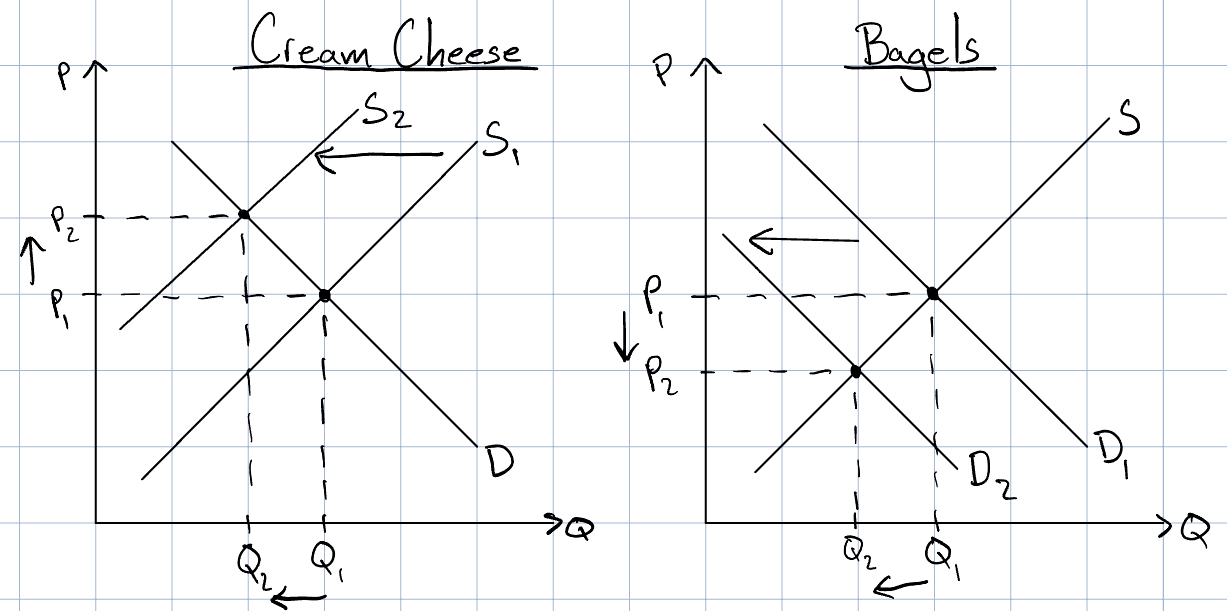 Cream Cheese
P
S₂
S₁
P₂
P₁
D
Q
Q₂
Q₁
Bagels
P
S
P₁
P₂
D₁
D₂
Q
Q₂
Q₁